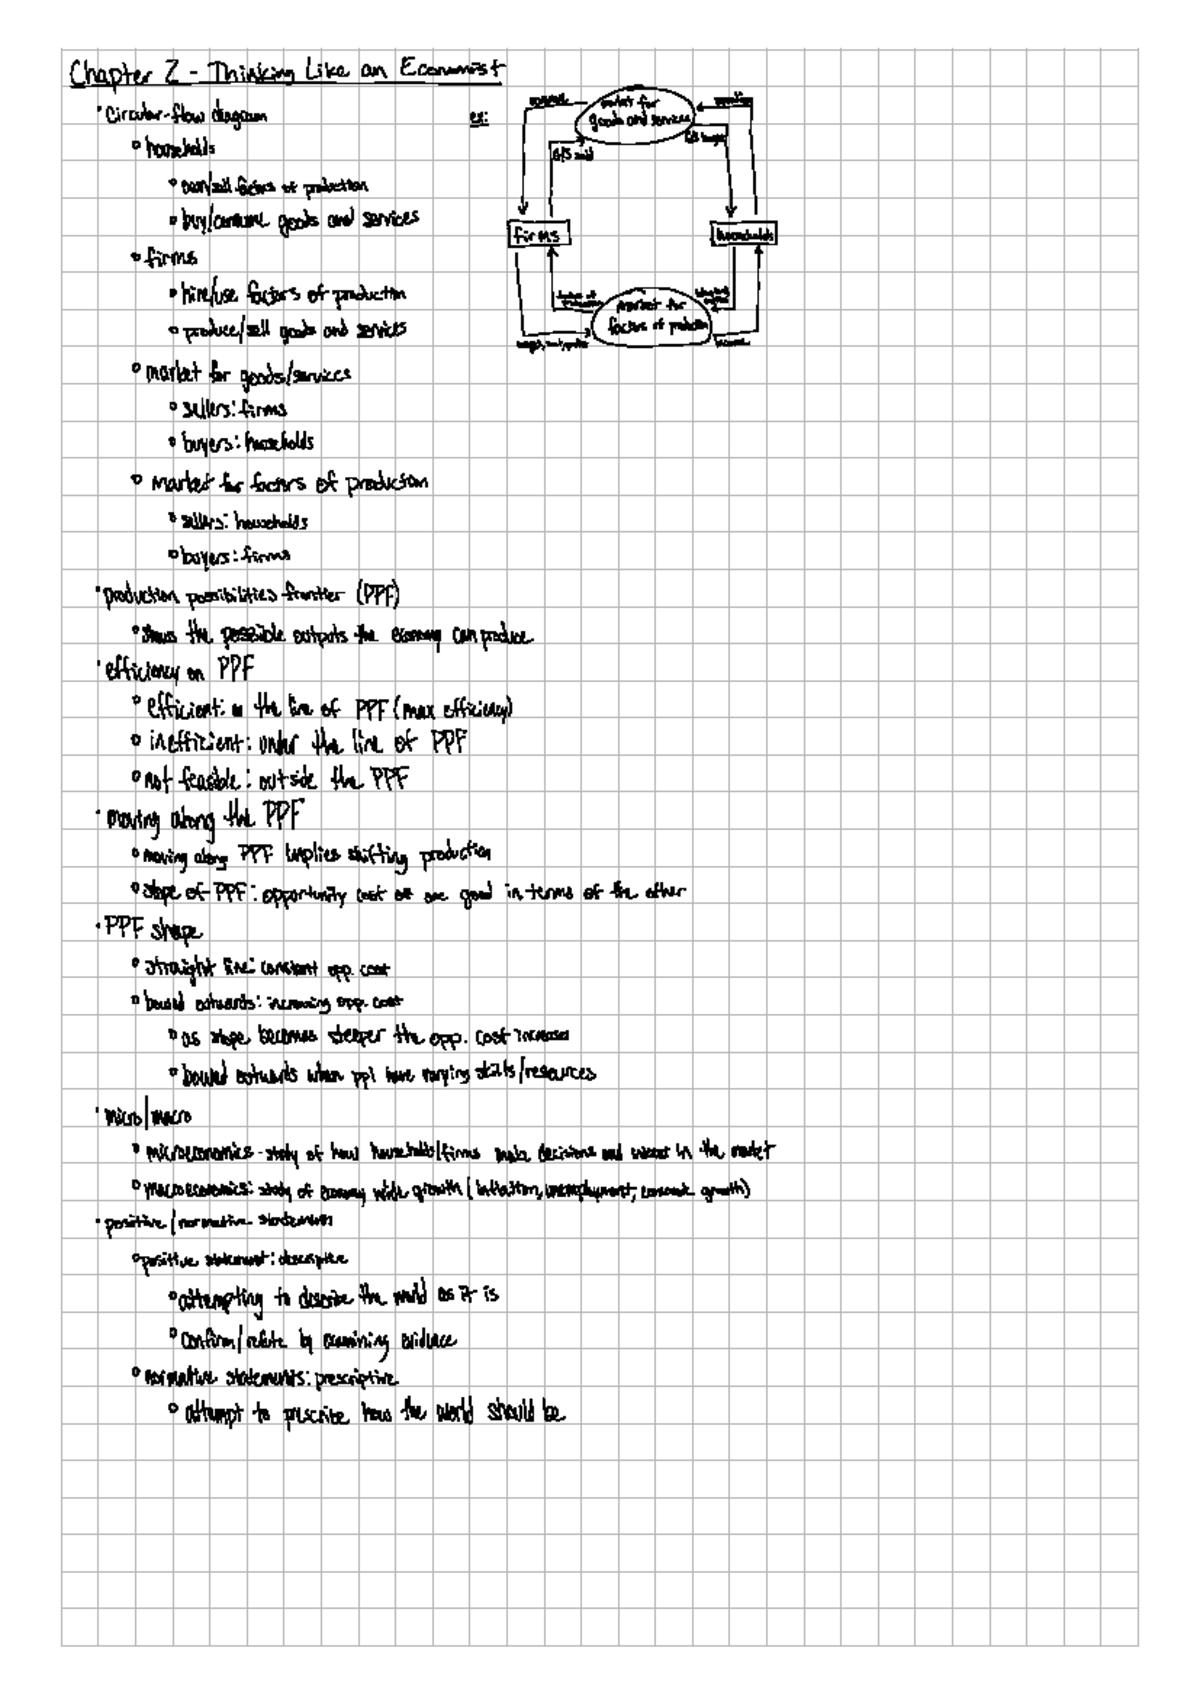 Chapter 2 - Thinking Like an Economist
Circular-flow diagram
households
own/sell factors of production
buy/consume goods and services
firms
hire/use factors of production
produce/sell goods and services
market for goods/services
sellers: firms
buyers: households
market for factors of production
sellers: households
buyers: firms
ex:
market for
goods and services
revenue
spending
G/S sold
G/S bought
firms
households
factors of
production
market for
factors of production
wages, rent, profit
income
production possibilities frontier (PPF)
shows the possible outputs the economy can produce
efficiency on PPF
efficient: on the line of PPF (max efficiency)
inefficient: under the line of PPF
not feasible: outside the PPF
moving along the PPF
moving along PPF implies shifting production
slope of PPF: opportunity cost of one good in terms of the other
PPF shape
straight line: constant opp. cost
bowed outwards: increasing opp. cost
as slope becomes steeper the opp. cost increases
bowed outwards when ppl have varying skills/resources
micro/macro
microeconomics - study of how households/firms make decisions and interact in the market
macroeconomics: study of economy wide growth (inflation, unemployment, economic growth)
positive/normative statements
positive statement: descriptive
attempting to describe the world as it is
confirm/refute by examining evidence
normative statements: prescriptive
attempt to prescribe how the world should be